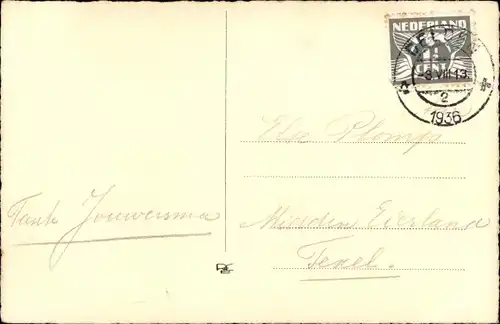 NEDERLAND
1½
CENT
-8 VIII 13
2
1936
Else Plomp
Tante Jouwersma
Midden Eierland
Texel.